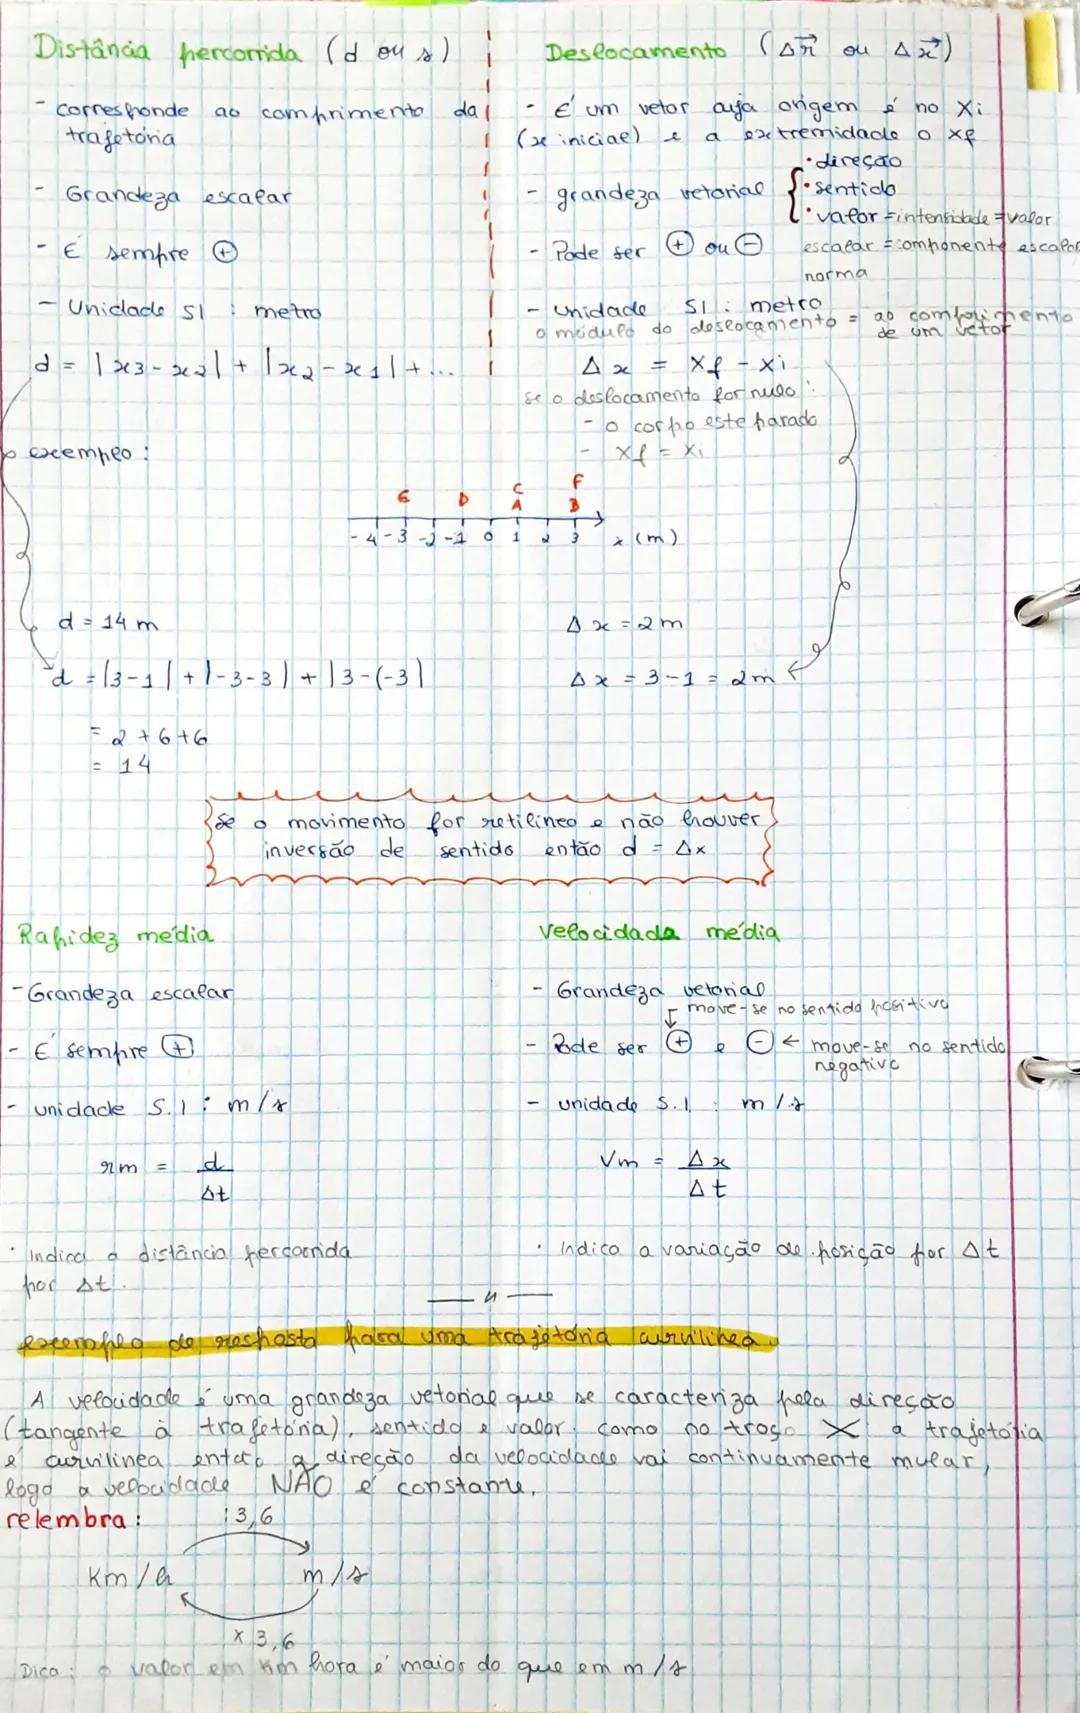 Distância percorrida (d ou s)
- corresponde ao comprimento da
trajetória
- Grandeza escalar
- É sempre ⊕
- Unidade SI : metro
d = |x3 - x2| + |x2 - x1| + ...
Deslocamento (Δr⃗ ou Δx⃗)
- É um vetor cuja origem é no Xi
(x inicial) e a extremidade o xf
- grandeza vetorial { · direção
· sentido
· valor = intensidade = valor
escalar = componente escalar
norma
- Pode ser ⊕ ou ⊖
- Unidade SI : metro
o módulo do deslocamento = ao comprimento
de um vetor
Δx = Xf - Xi
se o deslocamento for nulo :
- o corpo este parado
- Xf = Xi
exemplo :
E D C F
A B
-4 -3 -2 -1 0 1 2 3 x (m)
d = 14 m
d = |3-1| + |-3-3| + |3-(-3|
= 2 + 6 + 6
= 14
Δx = 2 m
Δx = 3 - 1 = 2 m
Se o movimento for retilíneo e não houver
inversão de sentido então d = Δx
Rapidez média
- Grandeza escalar
- É sempre ⊕
- unidade S.I : m/s
rm = d/Δt
· Indica a distância percorrida
por Δt.
Velocidada média
- Grandeza vetorial
move-se no sentido positivo
- Pode ser ⊕ e ⊖ ← move-se no sentido
negativo
- unidade S.I : m/s
Vm = Δx/Δt
· Indica a variação de posição por Δt
— " —
exemplo de resposta para uma trajetória curvilínea.
A velocidade é uma grandeza vetorial que se caracteriza pela direção
(tangente à trajetória), sentido e valor. Como no troço X a trajetória
é curvilínea então a direção da velocidade vai continuamente mudar,
logo a velocidade NÃO é constante.
relembra :
: 3,6
Km/h m/s
x 3,6
Dica : o valor em Km hora é maior do que em m/s